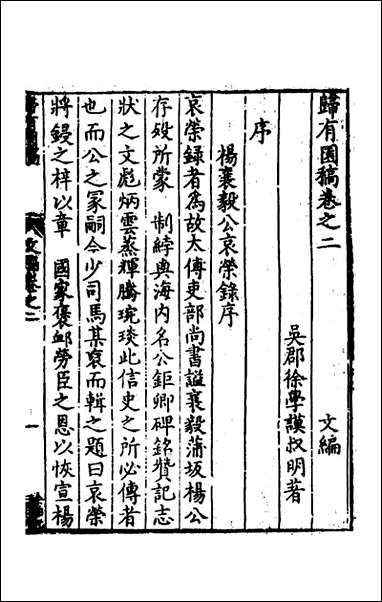 歸有園稿卷之二　文編
吳郡徐學謨叔明著
序
楊襄毅公哀榮錄序
哀榮錄者爲故太傅吏部尚書謚襄毅蒲坂楊公
存歿所蒙　制綍與海內名公鉅卿碑銘贊記志
狀之文彪炳雲蒸輝騰琬琰此信史之所必傳者
也而公之冢嗣今少司馬某裒而輯之題曰哀榮
將鋟之梓以章　國家褒卹勞臣之恩以恢宣楊
文編卷之二　一